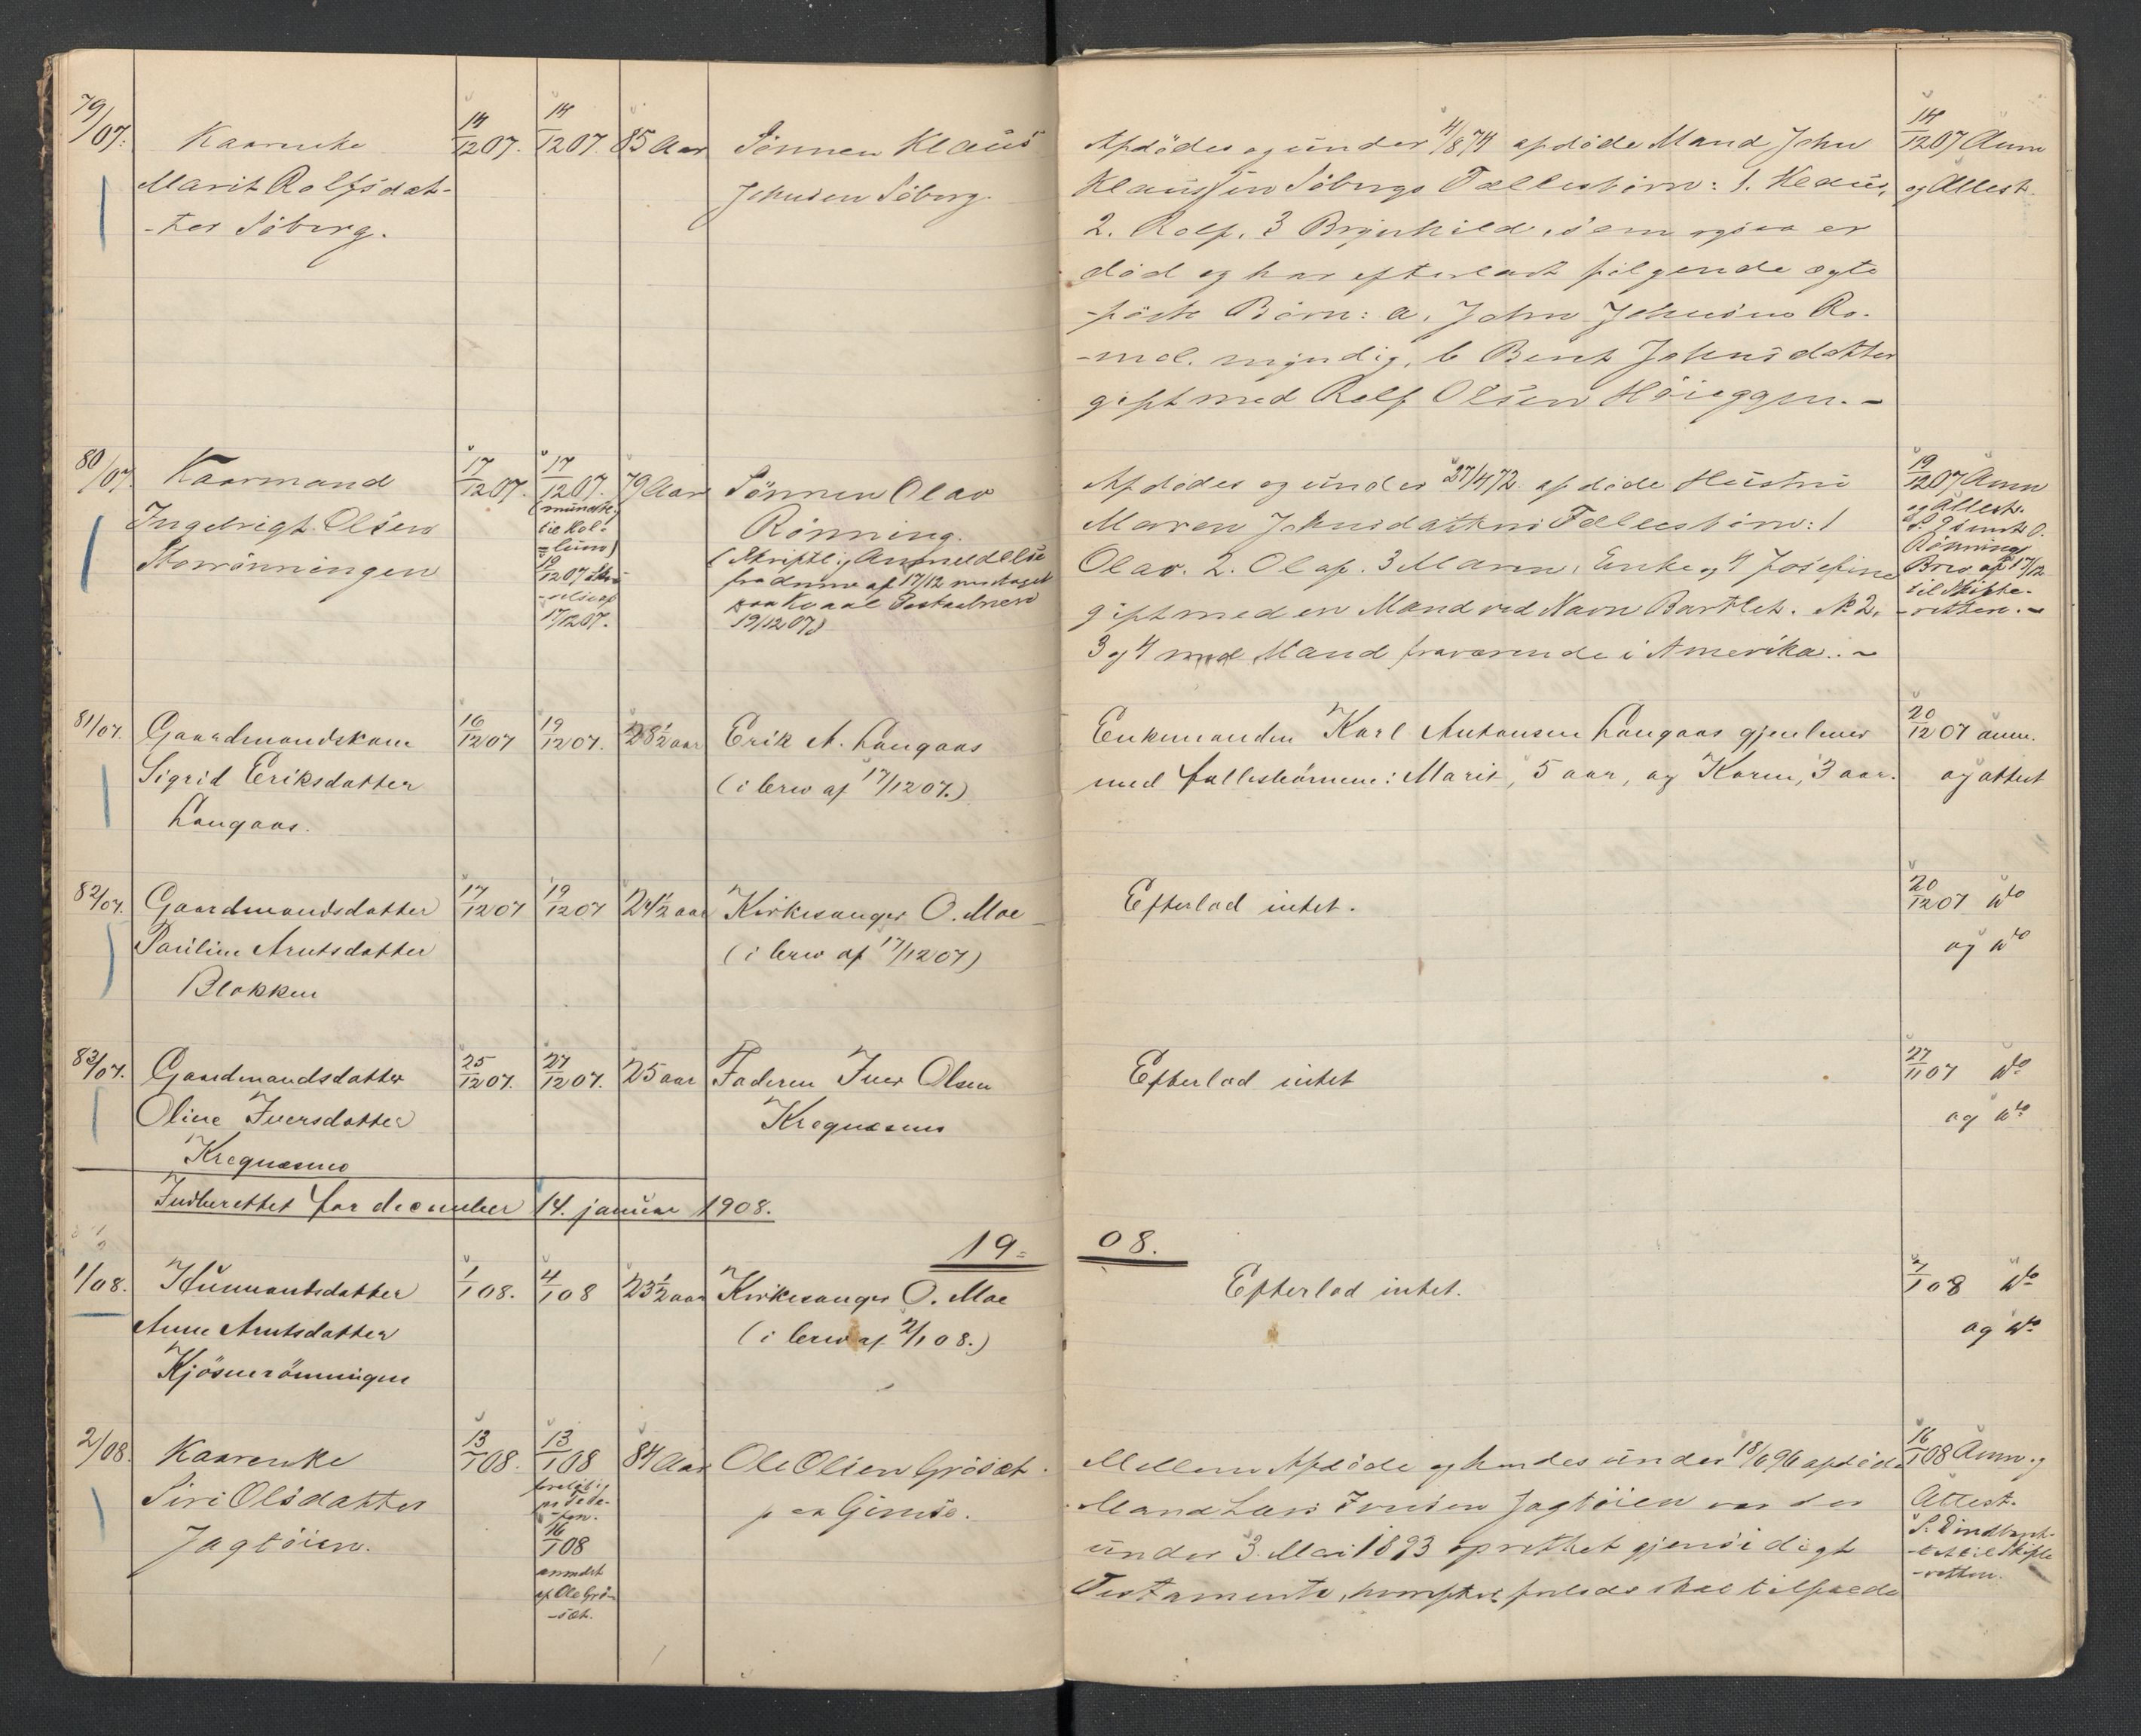 79/07.
Kaarenke
Marit Rolfsdat-
-ter Söberg.
14/12 07.
14/12 07.
85 Aar
Sönnen Klaus
Johnsen Söberg.
Afdödes og under 4/8 74 afdöde Mand John
Klaussen Söbergs Fællesbörn: 1. Klaus,
2. Rolf, 3 Brynhild, som ogsaa er
död og har efterladt fölgende ægte
-födte Börn: a, John Johnsen Ro-
-mol. myndig, b Berit Johnsdatter
gift med Rolf Olsen Höieggen. -
14/12 07 Anm
og Attest.
80/07.
Kaarmand
Ingebrigt Olsen
Storrönningen
17/12 07.
17/12 07.
(mundtl.
til Kol-
=lum)
19/12 07
17/12 07.
79 Aar
Sönnen Olav
Rönning.
(Skriftlig Anmeldelse
fra denne af 17/12 modtaget
paa Kvaal Postaabneri
19/12 07)
Afdödes og under 27/4 72. afdöde Hustru
Maren Johnsdatters Fællesbörn: 1
Olav. 2. Olaf. 3 Maren, Enke og 4 Josefine
gift med en Mand ved Navn Bartlet. No 2,
3 og 4 med Mand fraværende i Amerika. -
19/12 07 Anm
og Attest.
S. D sendt O.
Rönnings
Brev af 17/12
til Skifte-
-retten. -
81/07.
Gaardmandskone
Sigrid Eriksdatter
Langaas.
16/12 07
19/12 07.
28 1/2 aar
Erik A. Langaas
(i brev af 17/12 07.)
Enkemanden Karl Antonsen Langaas gjenlever
med fællesbörnene: Marit, 5 aar, og Karen, 3 aar.
20/12 07 anm.
og attest
82/07.
Gaardmandsdatter
Pauline Arntsdatter
Blokken
17/12 07
19/12 07
24 1/2 aar
Kirkesanger O. Moe
(i brev af 17/12 07)
Efterlod intet.
20/12 07 do
og do
83/07.
Gaardmandsdatter
Oline Iversdatter
Kregnæsmo
25/12 07.
27/12 07.
25 aar
Faderen Iver Olsen
Kregnæsmo
Efterlod intet
27/11 07 do
og do
Indberettet for december 14. januar 1908.
19=08.
1/08.
Husmandsdatter
Anne Arntsdatter
Kjösmerönningen
1/1 08.
4/1 08
23 1/2 aar
Kirkesanger O. Moe
(i brev af 2/1 08.)
Efterlod intet.
7/1 08 do
og do
2/08.
Kaarenke
Siri Olsdatter
Jagtöien.
13/1 08.
13/1 08
forelöbig
pr Tele-
-fon.
16/1 08
anmeldt
af Ole Grö-
-sæt.
84 Aar
Ole Olsen Grösæt.
paa Gimse.
Mellem Afdöde og hendes under 18/6 96 afdöde
Mand Lars Iversen Jagtöien var der
under 3. Mai 1893 oprettet gjensidigt
Testamente, hvorefter skal tilfalde
16/1 08 Anm. og
Attest.
S. D indbret-
-tet til Skifte
-retten.